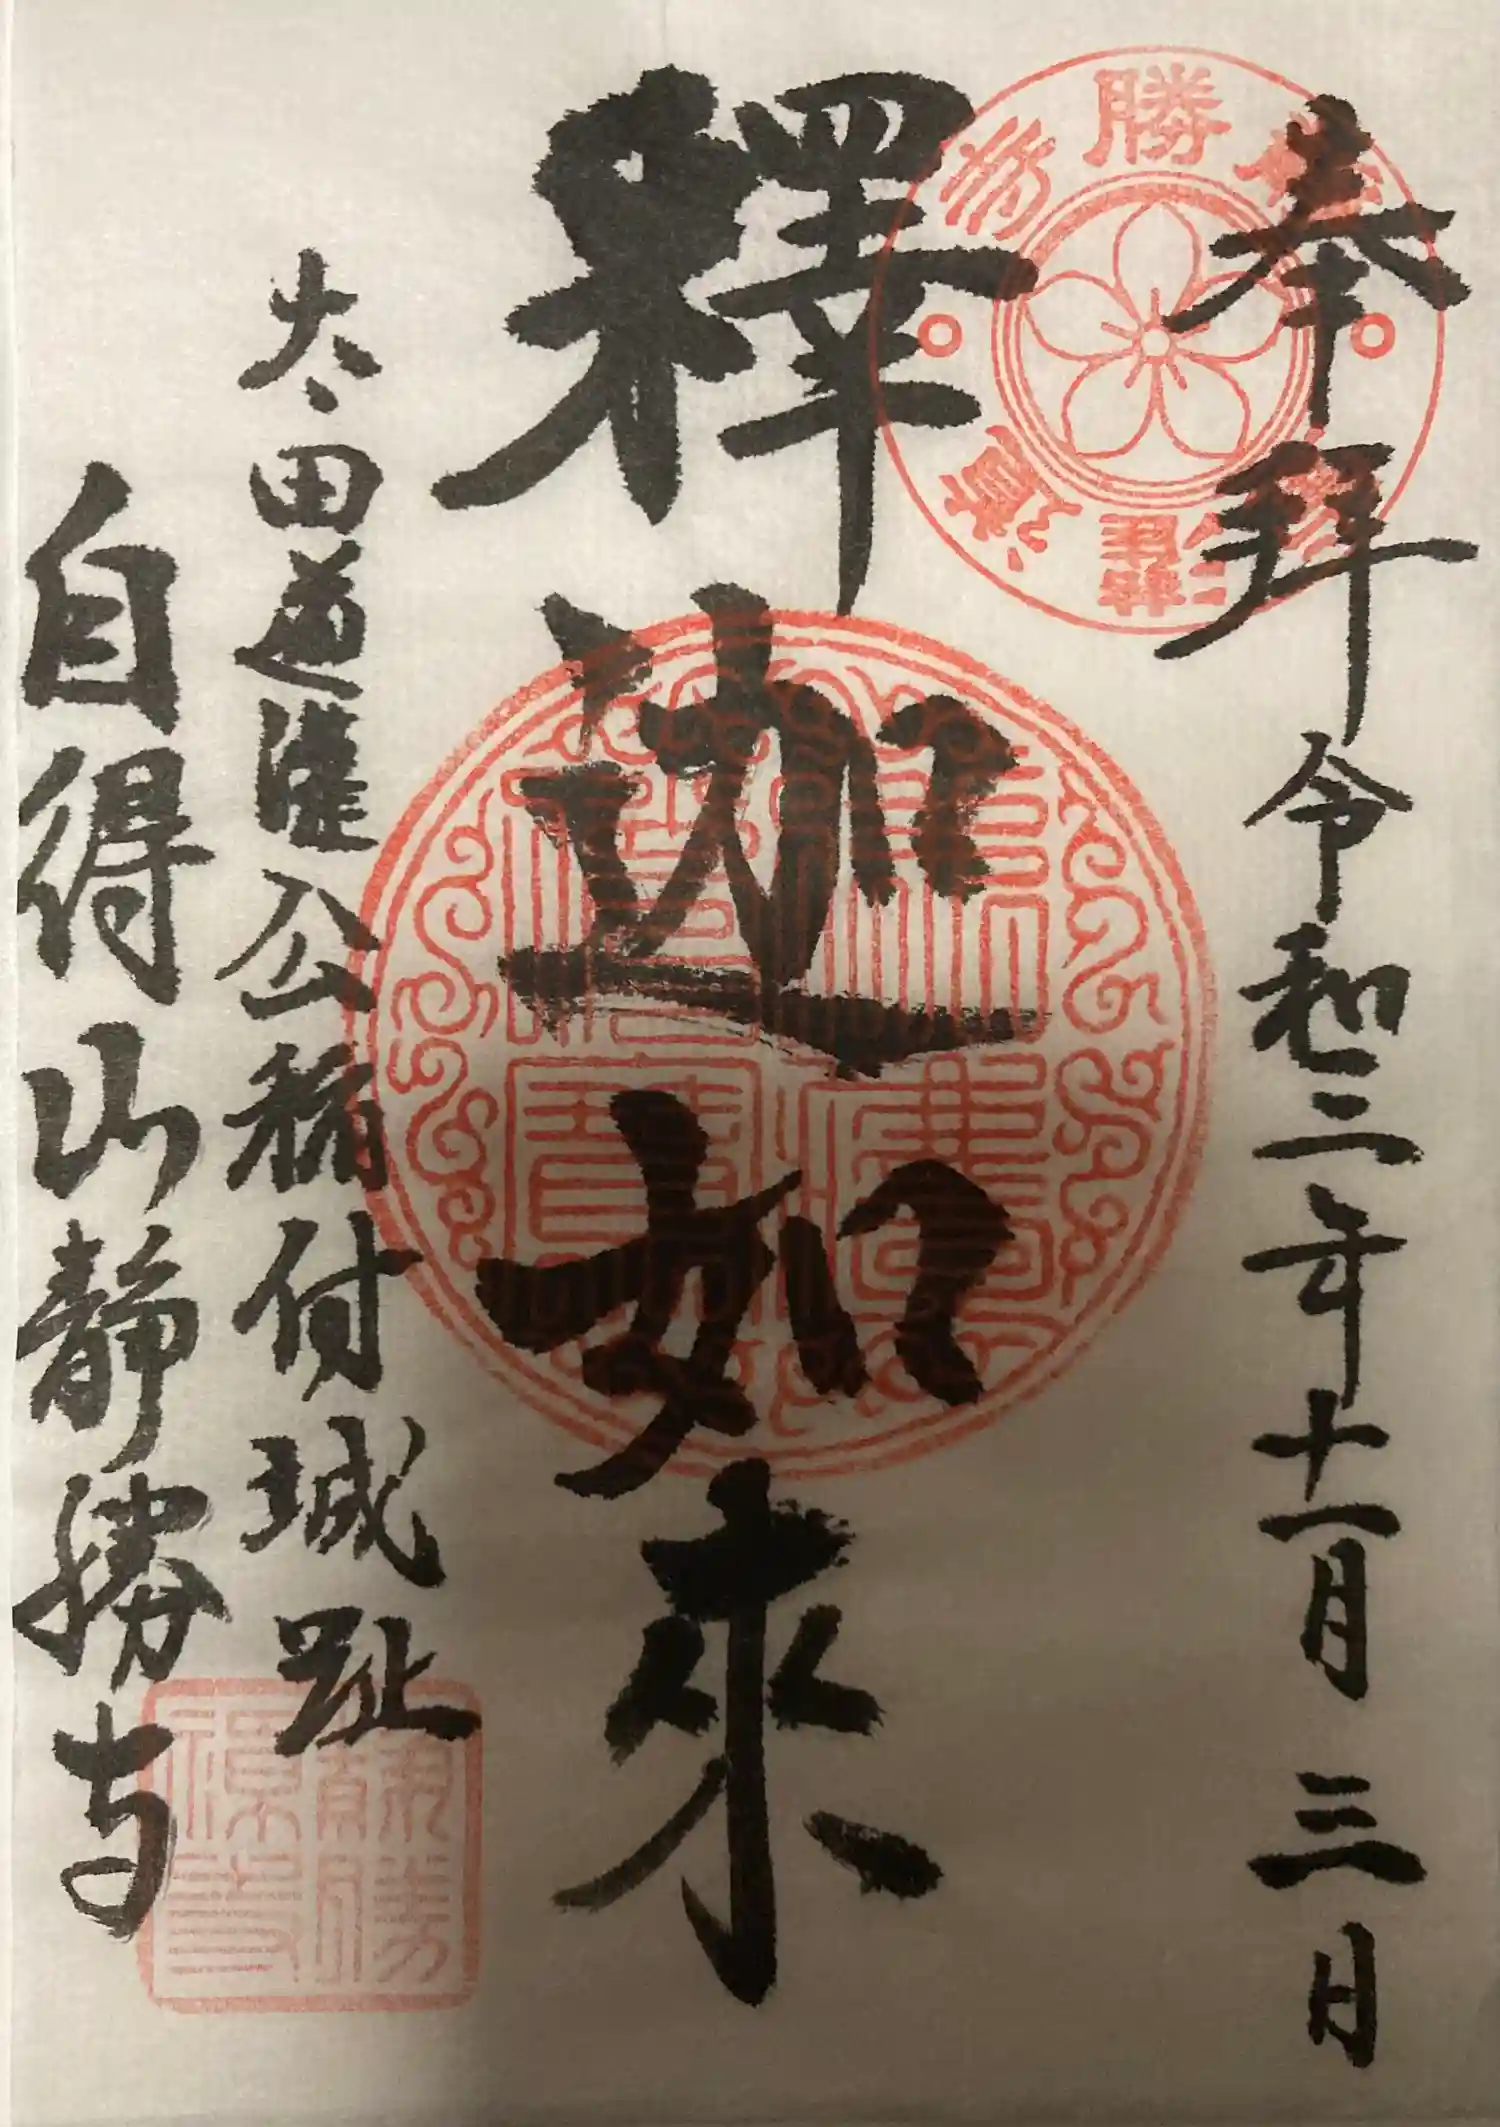 奉拝 令和三年十一月三日
釋迦如来
太田道灌公稲付城趾
自得山静勝寺